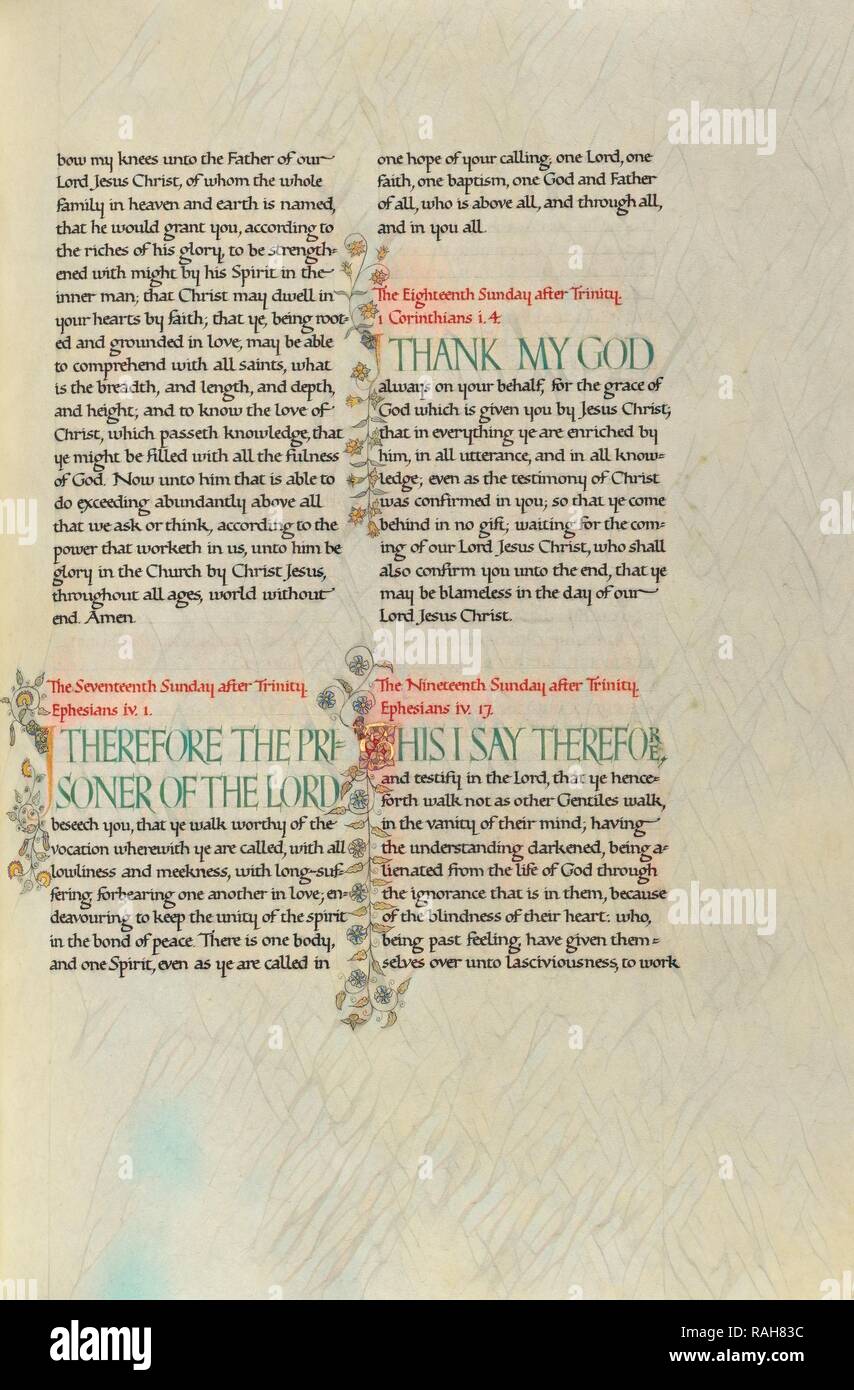 bow my knees unto the Father of our
Lord Jesus Christ, of whom the whole
family in heaven and earth is named,
that he would grant you, according to
the riches of his glory, to be strength=
ened with might by his Spirit in the
inner man; that Christ may dwell in
your hearts by faith; that ye, being root=
ed and grounded in love, may be able
to comprehend with all saints, what
is the breadth, and length, and depth,
and height; and to know the love of
Christ, which passeth knowledge, that
ye might be filled with all the fulness
of God. Now unto him that is able to
do exceeding abundantly above all
that we ask or think, according to the
power that worketh in us, unto him be
glory in the Church by Christ Jesus,
throughout all ages, world without
end. Amen.
The Seventeenth Sunday after Trinity.
Ephesians iv. 1.
I THEREFORE THE PRI=
SONER OF THE LORD
beseech you, that ye walk worthy of the
vocation wherewith ye are called, with all
lowliness and meekness, with long-suf=
fering, forbearing one another in love; en=
deavouring to keep the unity of the spirit
in the bond of peace. There is one body,
and one Spirit, even as ye are called in
one hope of your calling; one Lord, one
faith, one baptism, one God and Father
of all, who is above all, and through all,
and in you all.
The Eighteenth Sunday after Trinity.
1 Corinthians i. 4.
I THANK MY GOD
always on your behalf, for the grace of
God which is given you by Jesus Christ;
that in everything ye are enriched by
him, in all utterance, and in all know=
ledge; even as the testimony of Christ
was confirmed in you; so that ye come
behind in no gift; waiting for the com=
ing of our Lord Jesus Christ, who shall
also confirm you unto the end, that ye
may be blameless in the day of our
Lord Jesus Christ.
The Nineteenth Sunday after Trinity.
Ephesians iv. 17.
THIS I SAY THEREFORE,
and testify in the Lord, that ye hence=
forth walk not as other Gentiles walk,
in the vanity of their mind; having
the understanding darkened, being a=
lienated from the life of God through
the ignorance that is in them, because
of the blindness of their heart: who,
being past feeling, have given them=
selves over unto lasciviousness, to work
alamy
alamy
alamy
alamy
Image ID: RAH83C
www.alamy.com